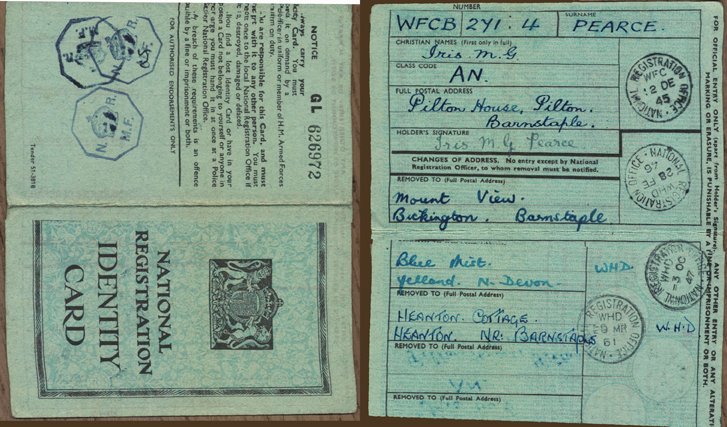 NOTICE
GL 626972
Always carry your
Identity Card. You must
produce it on demand by a
Police Officer in uniform or member of H.M. Armed Forces
in uniform on duty.
You are responsible for this Card, and must
not part with it to any other person. You must
report at once to the local National Registration Office if
it is lost, destroyed, damaged or defaced.
If you find a lost Identity Card or have in your
possession a Card not belonging to yourself or anyone in
your charge you must hand it in at once at a Police
Station or National Registration Office.
Any breach of these requirements is an offence
punishable by a fine or imprisonment or both.
FOR AUTHORISED ENDORSEMENTS ONLY
N. R.
M.F.
NATIONAL
REGISTRATION
IDENTITY
CARD
NUMBER
SURNAME
WFCB 241 : 4
PEARCE.
CHRISTIAN NAMES (First only in full)
Iris M.G
CLASS CODE
AN.
FULL POSTAL ADDRESS
Pilton House, Pilton.
Barnstaple.
HOLDER'S SIGNATURE
Iris M G Pearce
CHANGES OF ADDRESS. No entry except by National
Registration Officer, to whom removal must be notified.
REMOVED TO (Full Postal Address)
Mount View.
Bickington. Barnstaple
Blue Mist.
Yelland. N. Devon.
WHD
REMOVED TO (Full Postal Address)
HEANTON COTTAGE.
HEANTON. NR. BARNSTAPLE
W.H.D
REMOVED TO (Full Postal Address)
REMOVED TO (Full Postal Address)
NATIONAL REGISTRATION OFFICE
WFC
12 DE
45
NATIONAL REGISTRATION OFFICE
WHD
28 FE
46
NATIONAL REGISTRATION OFFICE
WHD
3 OC
47
NATIONAL REGISTRATION OFFICE
WHD
9 MR
FOR OFFICIAL ENTRY ONLY (apart from Holder's Signature). ANY OTHER ENTRY OR ANY ALTERATION,
MARKING OR ERASURE, IS PUNISHABLE BY A FINE OR IMPRISONMENT OR BOTH.